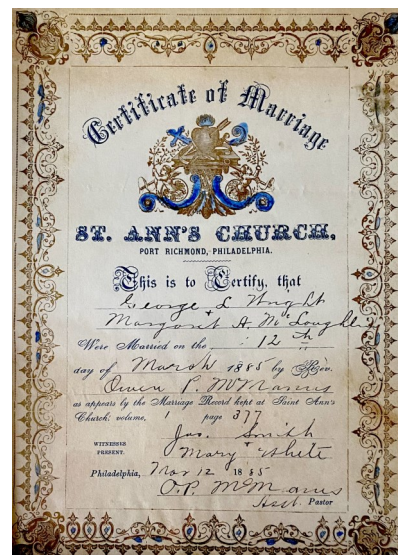 Certificate of Marriage
ST. ANN'S CHURCH,
PORT RICHMOND, PHILADELPHIA.
This is to Certify, that
George L Wright
+
Margaret A. McLaughlin
Were Married on the 12th
day of March 1885 by Rev.
Owen P. McManus
as appears by the Marriage Record kept at Saint Ann's
Church: volume, page 377
WITNESSES PRESENT. Jas. Smith
+
Mary White
Philadelphia, Mar 12 1885
O.P. McManus
Asst. Pastor